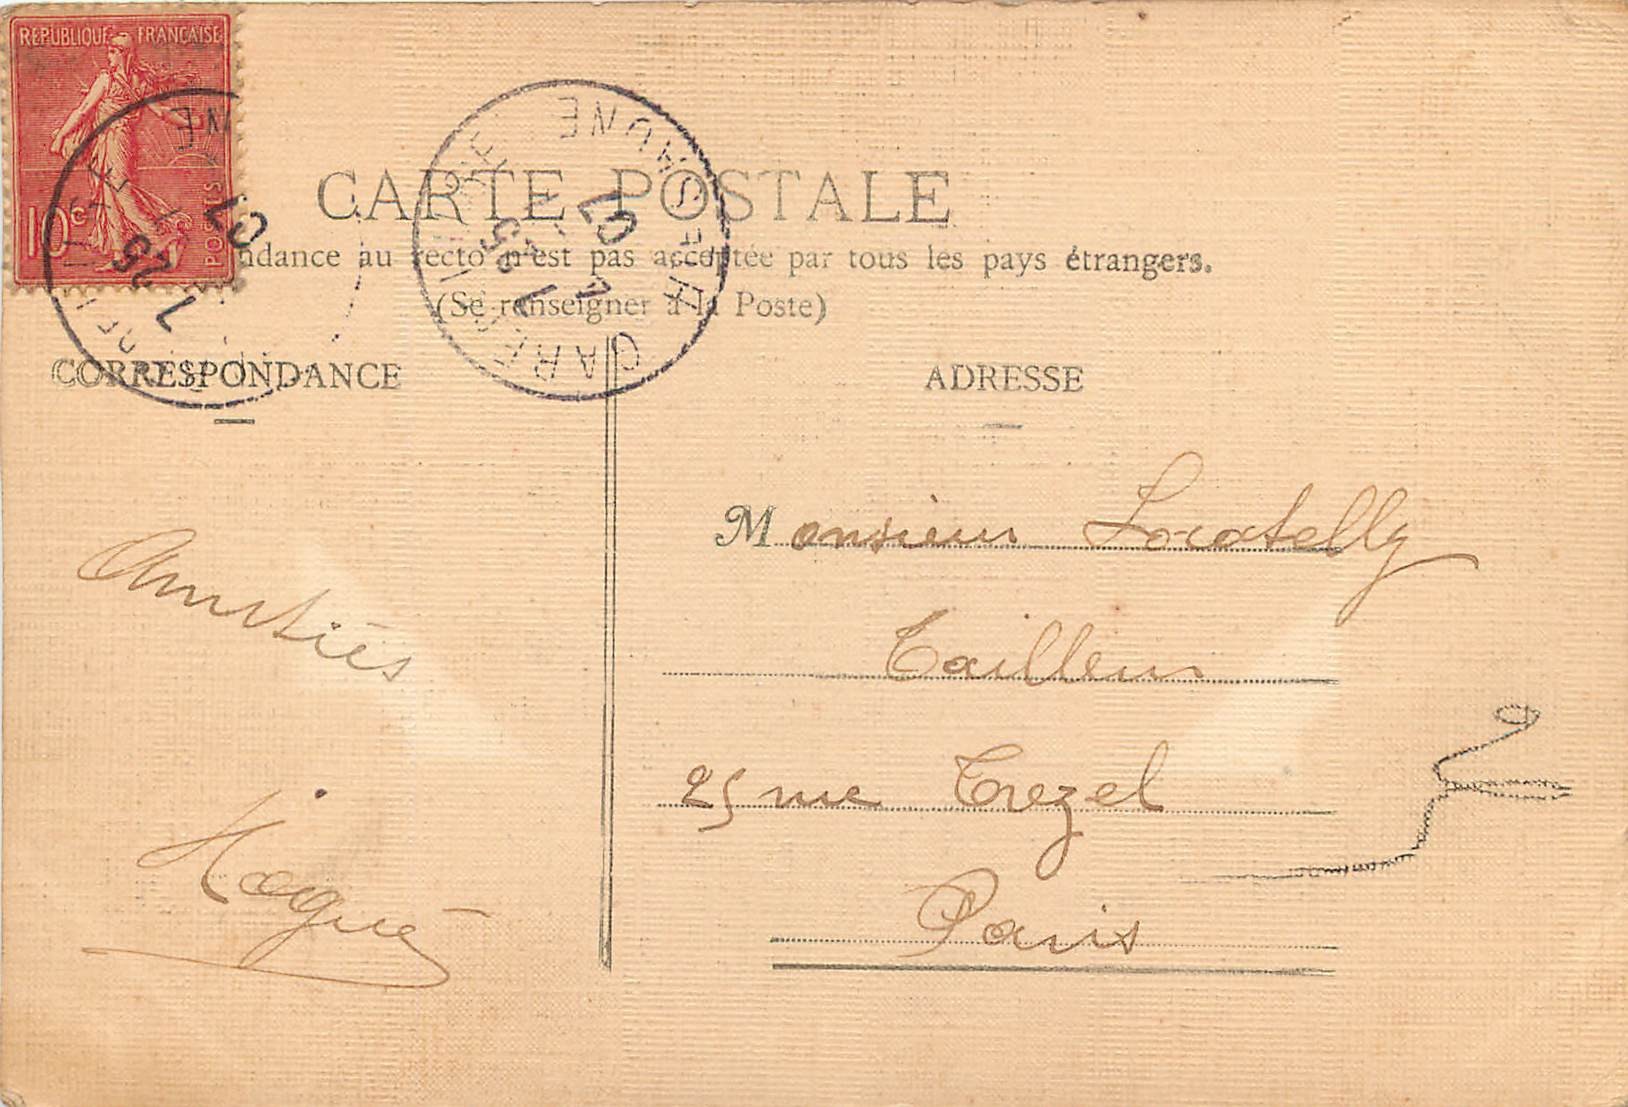 REPUBLIQUE FRANÇAISE
10c
POSTES
CARTE POSTALE
ndance au recto n'est pas acceptée par tous les pays étrangers.
(Se renseigner à la Poste)
CORRESPONDANCE
ADRESSE
Amitiés
Monsieur Locatelly
Tailleur
25 rue Trezel
Paris
07